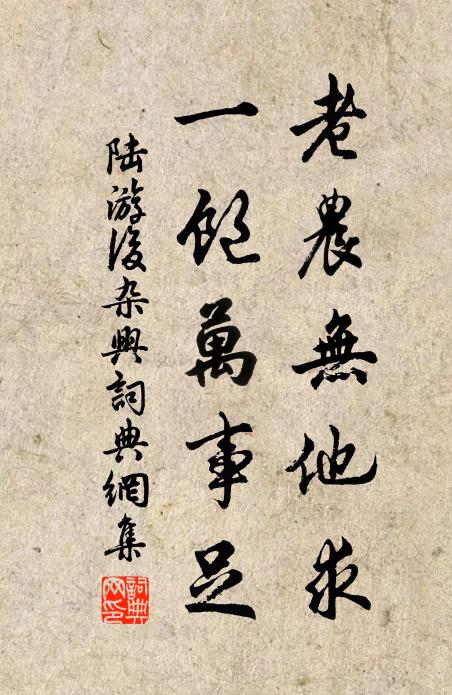 老農無他求
一飽萬事足
陸游後杂興詞典網集
詞典网印